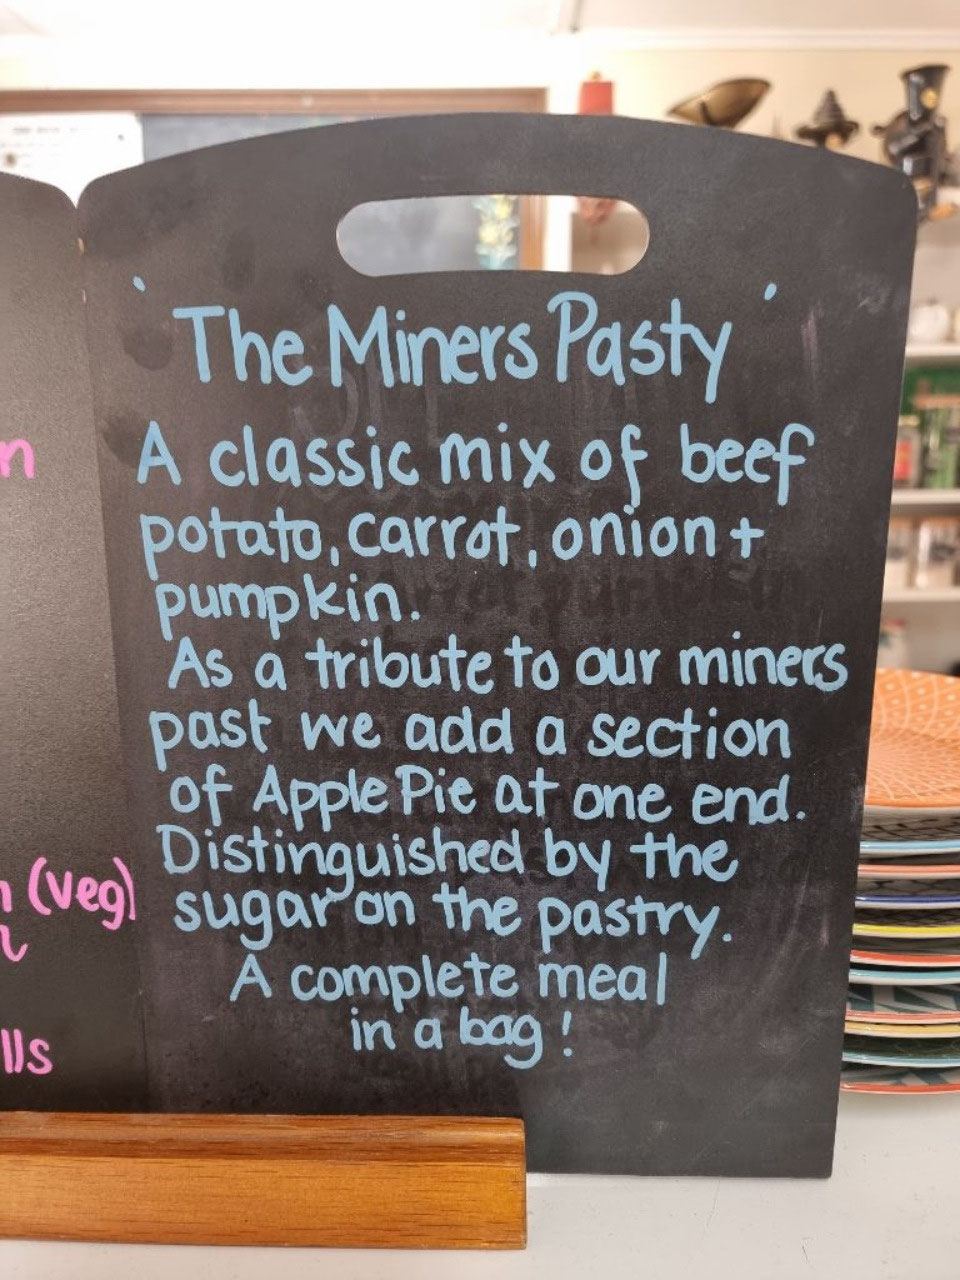 'The Miners Pasty'
A classic mix of beef
potato, carrot, onion +
pumpkin.
As a tribute to our miners
past we add a section
of Apple Pie at one end.
Distinguished by the
sugar on the pastry.
A complete meal
in a bag!
(veg)